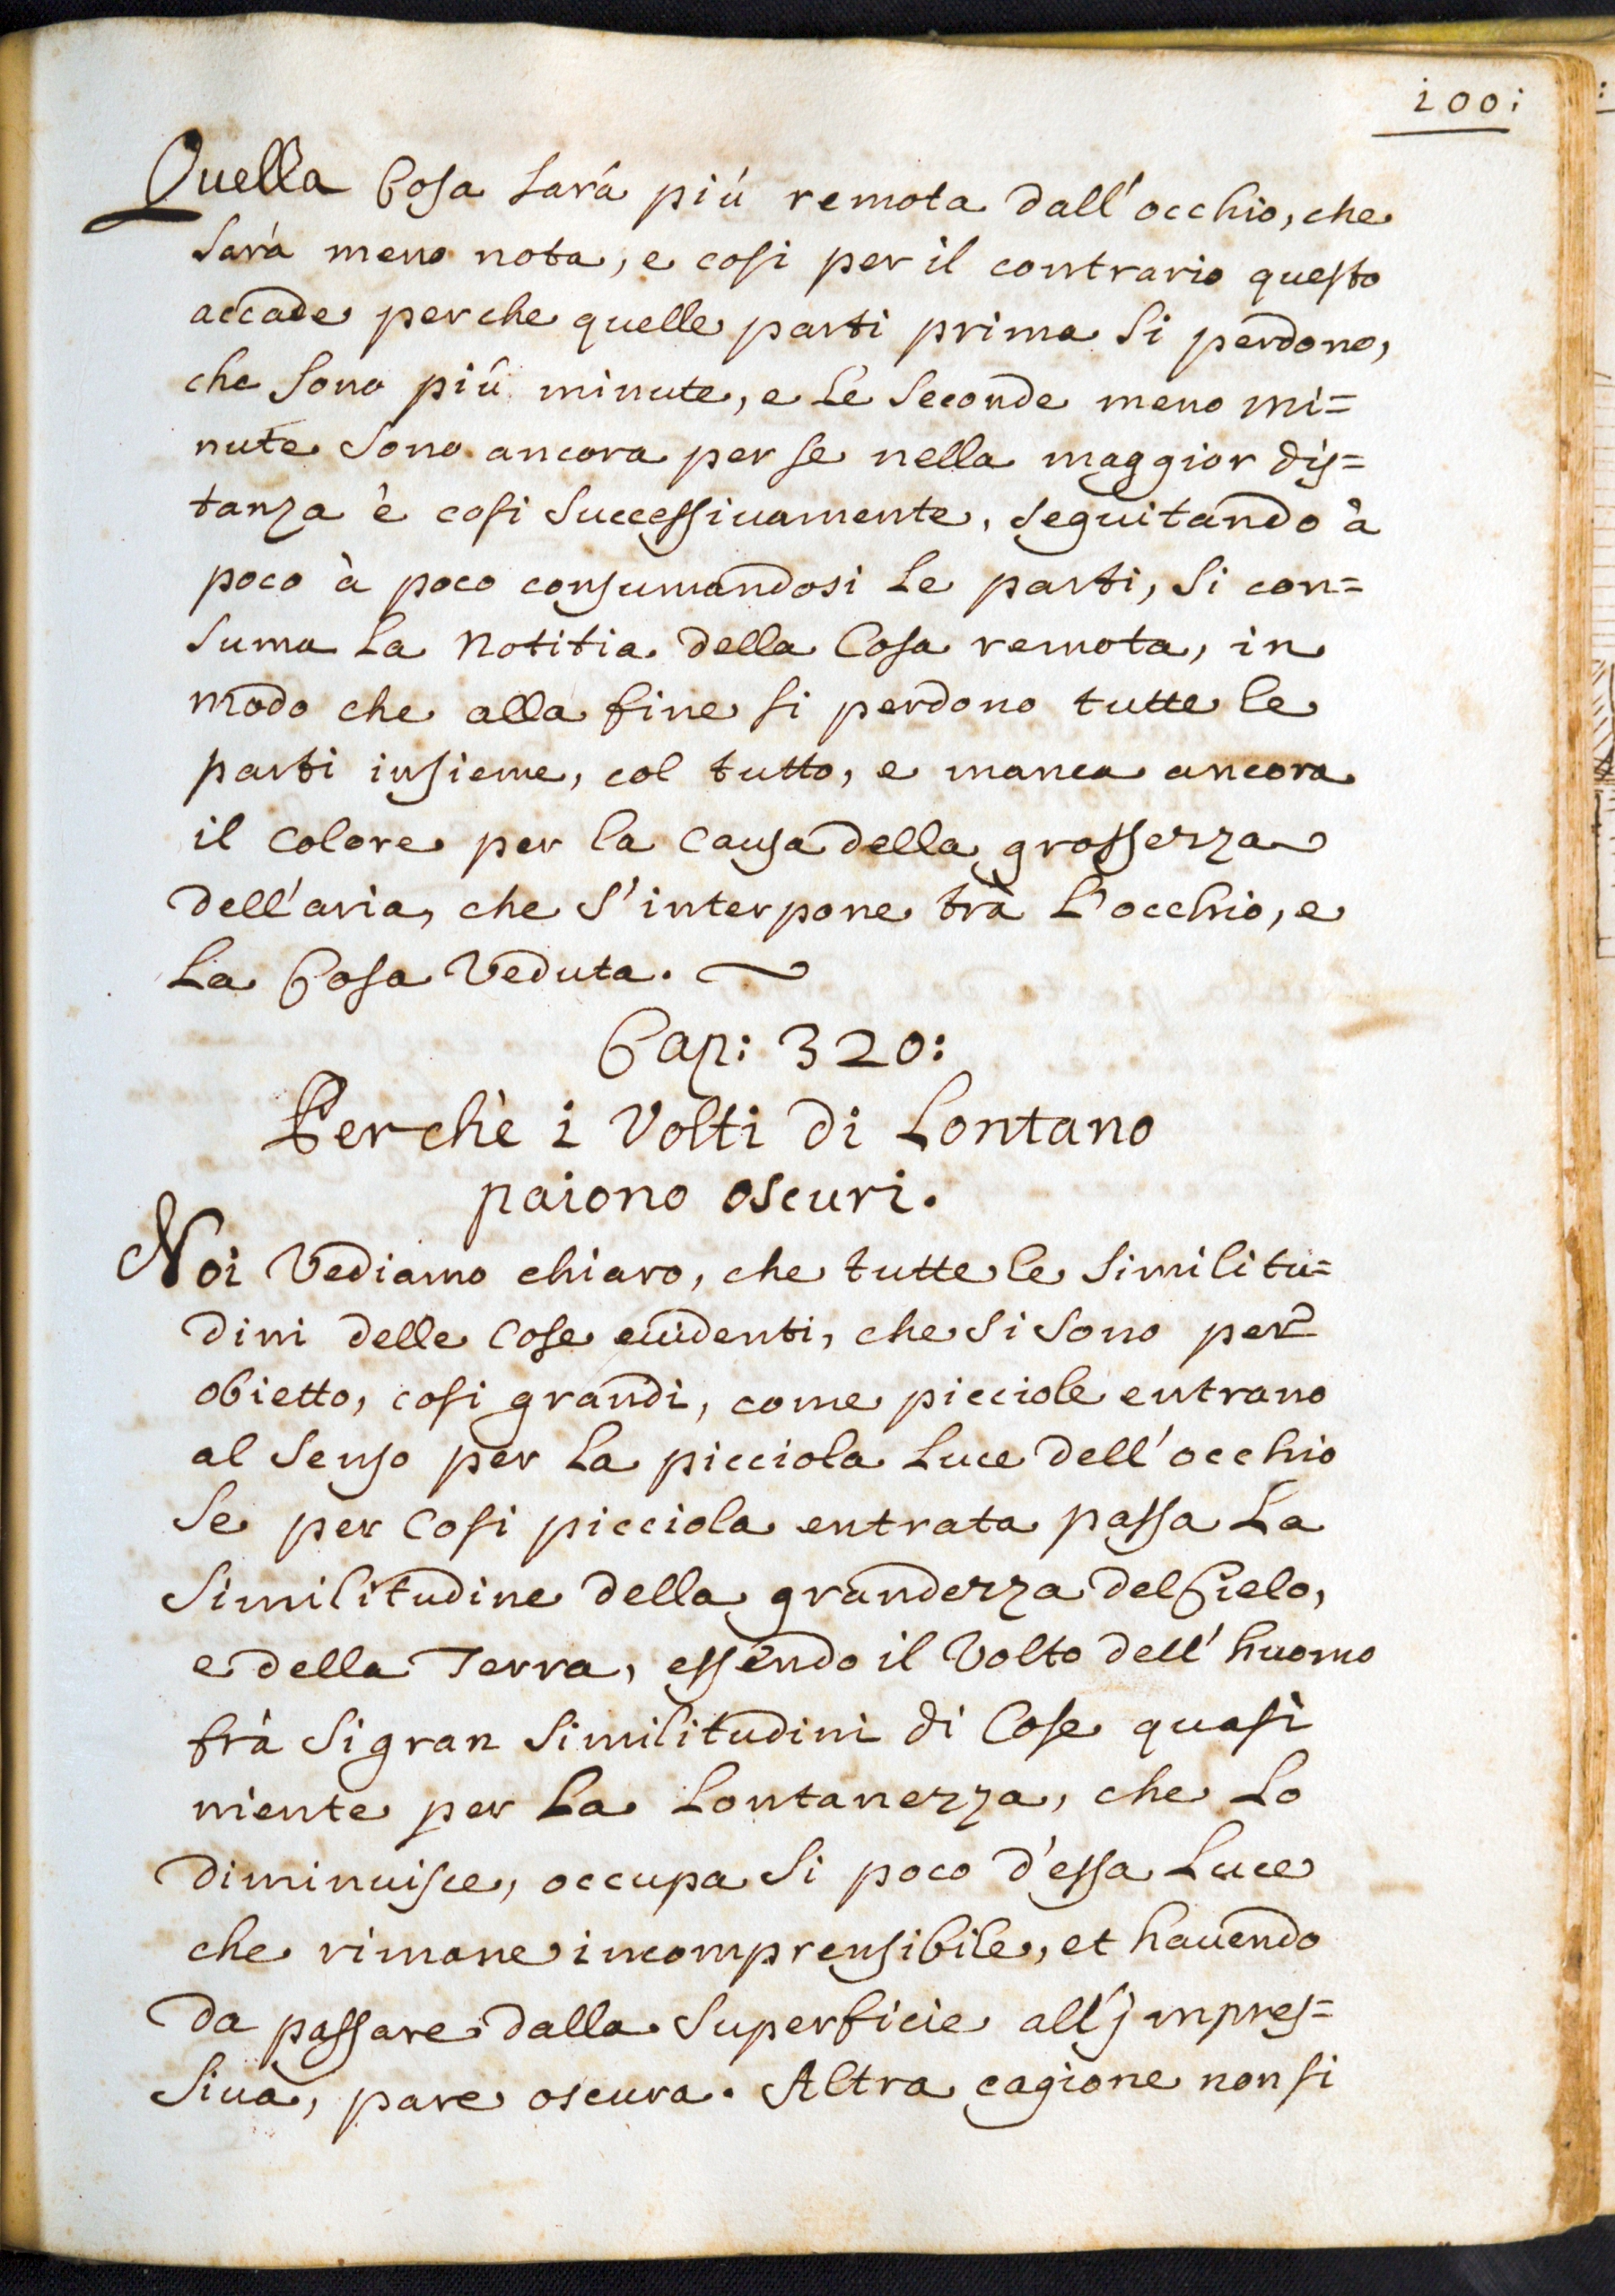 100:
Quella Cosa sarà più remota dall'occhio, che
sarà meno nota, e cosi per il contrario questo
accade perche quelle parti prima si perdono,
che sono più minute, e le seconde meno mi=
nute sono ancora per se nella maggior dis=
tanza è cosi successivamente, seguitando à
poco à poco consumandosi le parti, si con=
suma la notitia della Cosa remota, in
modo che alla fine si perdono tutte le
parti insieme, col tutto, e manca ancora
il colore per la causa della grossezza
dell'aria, che s'interpone trà l'occhio, e
la Cosa Veduta.
Cap: 320:
Perchè i Volti di Lontano
paiono oscuri.
Noi Vediamo chiaro, che tutte le similitu=
dini delle cose euidenti, che si sono per
obietto, cosi grandi, come picciole entrano
al senso per la picciola Luce dell'occhio
Se per Cosi picciola entrata passa La
Similitudine della grandezza del Cielo,
e della Terra, essendo il Volto dell'huomo
frà si gran similitudini di Cose quasi
niente per La Lontanezza, che Lo
diminuisce, occupa si poco d'essa Luce
che rimane incomprensibile, et hauendo
da passare dalla superficie all'jmpres=
siua, pare oscura. Altra cagione non si